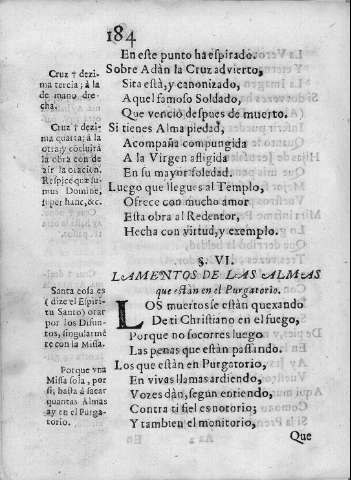 184
En este punto ha espirado.
Sobre Adàn la Cruz advierto,
Sita està, y canonizado,
Aquel famoso Soldado,
Que venciò despues de muerto.
Si tienes Alma piedad,
Acompaña compungida
A la Virgen afligida
En su mayor soledad.
Luego que llegues al Templo,
Ofrece con mucho amor
Esta obra al Redentor,
Hecha con virtud, y exemplo.
Cruz † dezi-
ma tercia; à la
de mano dre-
cha.
Cruz † dezi-
ma quarta; à la
otra; y cocluirà
la obra con de-
zir la oracion.
Respice quæsu-
mus Domine,
super hanc, &c.
§. VI.
LAMENTOS DE LAS ALMAS
que estàn en el Purgatorio.
LOS muertos se estàn quexando
De ti Christiano en el fuego,
Porque no socorres luego
Las penas que estàn passando.
Los que estàn en Purgatorio,
En vivas llamas ardiendo,
Vozes dàn, segun entiendo,
Contra ti siel es notorio;
Y tambien el monitorio,
Santa cosa es
(dize el Espiri-
tu Santo) orar
por los Difun-
tos, singularmē-
te con la Missa.
Porque vna
Missa sola, por
si, basta à sacar
quantas Almas
ay en el Purga-
torio.
Que